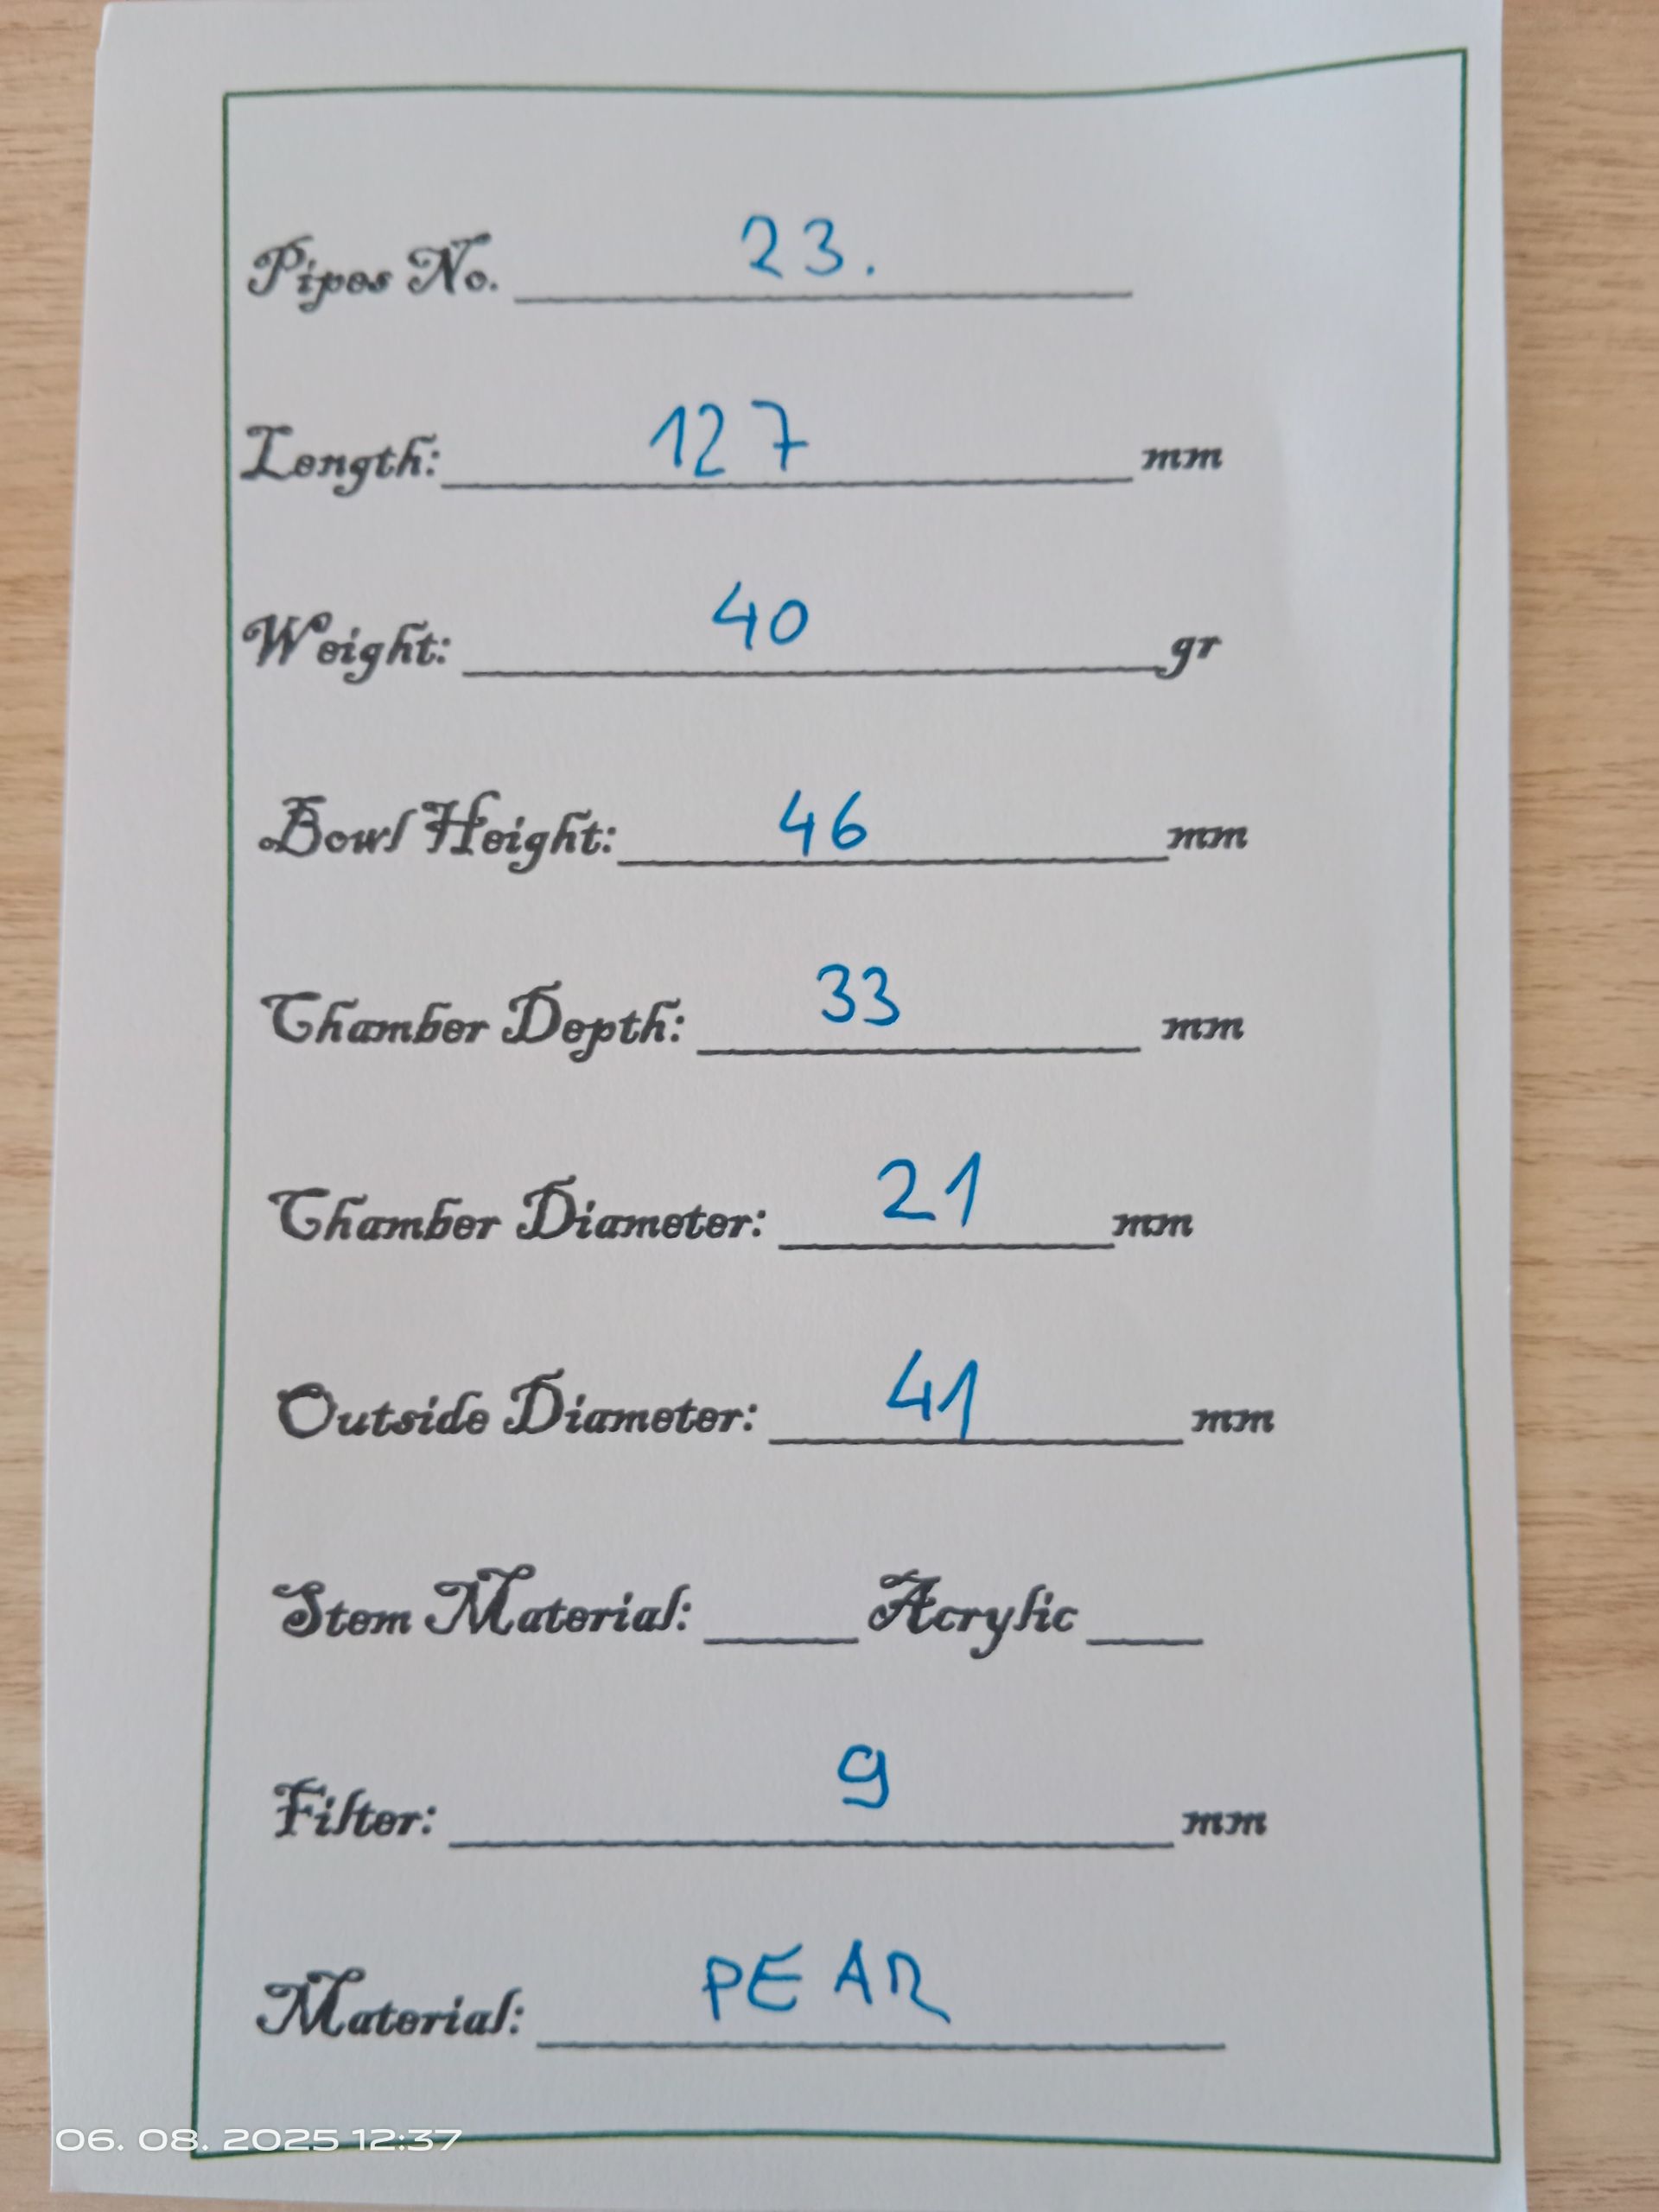 Pipes No. 23.
Length: 127 mm
Weight: 40 gr
Bowl Height: 46 mm
Chamber Depth: 33 mm
Chamber Diameter: 21 mm
Outside Diameter: 41 mm
Stem Material: Acrylic
Filter: 9 mm
Material: PEAR
06. 08. 2025 12:37